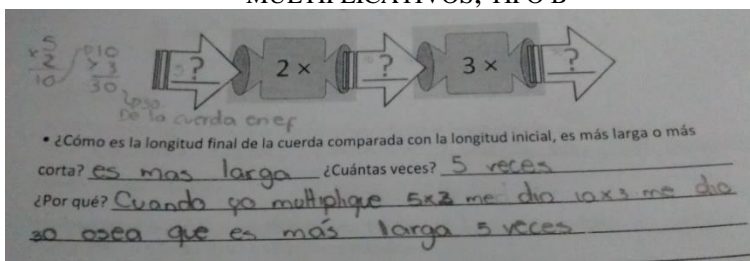 MULTIPLICATIVOS, TIPO B
5
× 2
10
10
× 3
30
? 2 × ? 3 × ?
De la cuerda
• ¿Cómo es la longitud final de la cuerda comparada con la longitud inicial, es más larga o más
corta? es mas larga ¿Cuántas veces? 5 veces
¿Por qué? Cuando yo multiplique 5x2 me dio 10x3 me dio
30 osea que es más larga 5 veces